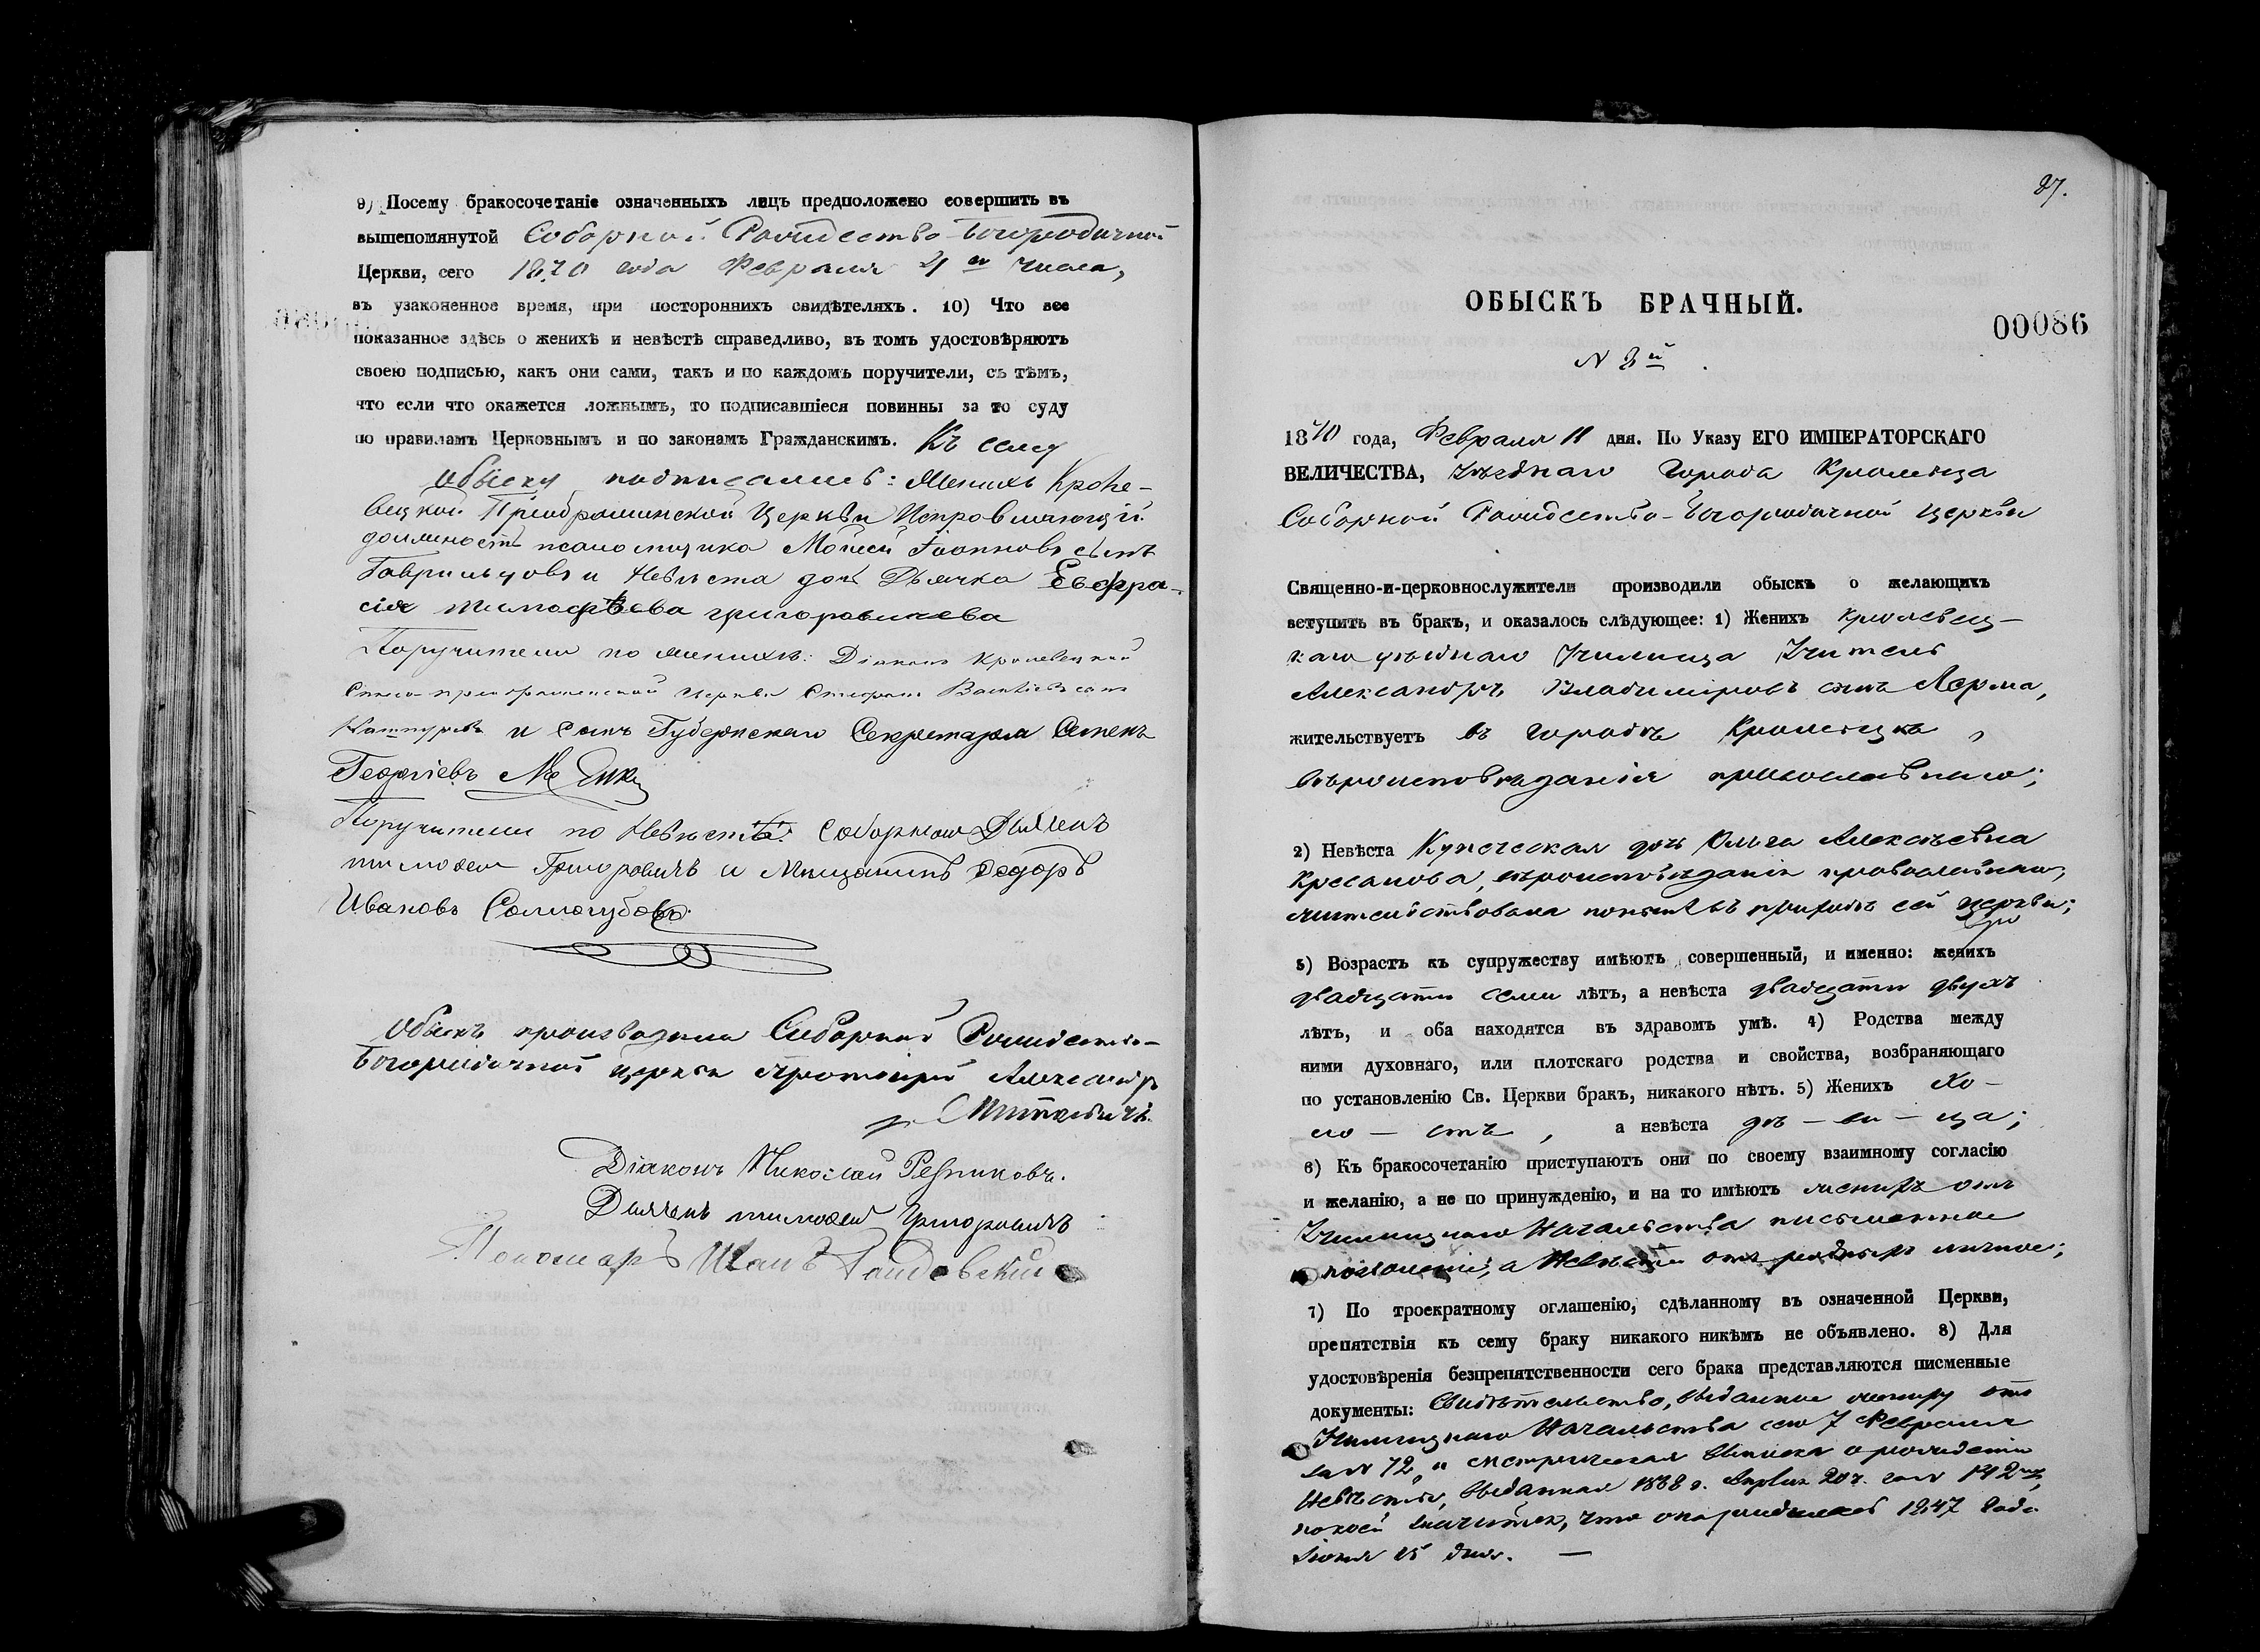 9) Посему бракосочетаніе означенныхъ лицъ предположено совершить въ
вышепомянутой Соборной Рождество-Богородичной
Церкви, сего 1870 года Февраля 4го числа,
въ узаконенное время, при постороннихъ свидѣтеляхъ. 10) Что все
показанное здѣсь о женихѣ и невѣстѣ справедливо, въ томъ удостовѣряютъ
своею подписью, какъ они сами, такъ и по каждомъ поручители, съ тѣмъ,
что если что окажется ложнымъ, то подписавшіеся повинны за то суду
по правиламъ Церковнымъ и по законамъ Гражданскимъ. Къ сему
обыску подписались: Женихъ Кроле-
вецкой Преображенской Церкви Исправляющій
должность псаломщика Мойсей Іоанновъ сынъ
Гаврильцовъ и Невѣста дочь Дьячка Евфра-
сія Тимофѣева Григоровичева
Поручители по женихѣ: Діаконъ Кролевецкой
Спасо-преображенской церкви Стефанъ Васильевъ сынъ
и Сынъ Губернскаго Секретаря Семенъ
Георгіевъ
Поручители по Невѣстѣ: Соборной Дьячекъ
Тимофей Григоровичъ и Мѣщанинъ Федоръ
Ивановъ Солмогубовъ
Обыскъ производили Соборной Рождество-
Богородичной церкви Протоіерей Александръ
Миткевичъ.
Діаконъ Николай Резниковъ.
Дьячекъ Тимофей Григоровичъ
Пономарь Иванъ
87.
ОБЫСКЪ БРАЧНЫЙ.
00086
N 8й
1870 года, Февраля 11 дня. По Указу ЕГО ИМПЕРАТОРСКАГО
ВЕЛИЧЕСТВА, Уѣзднаго Города Кролевца
Соборной Рождество-Богородичной церкви
Священно-и-церковнослужители производили обыскъ о желающихъ
вступить въ бракъ, и оказалось слѣдующее: 1) Женихъ Кролевец-
каго уѣзднаго Училища Учитель
Александръ Владиміровъ сынъ Лерма,
жительствуетъ въ городѣ Кролевцѣ,
вѣроисповѣданія православнаго;
2) Невѣста Купеческая дочь Ольга Алексѣевна
Кресанова, вѣроисповѣданія православнаго,
жительствовала понынѣ въ приходѣ сей церкви;
3) Возрастъ къ супружеству имѣютъ совершенный, и именно: женихъ
двадцати семи лѣтъ, а невѣста двадцати двухъ
лѣтъ, и оба находятся въ здравомъ умѣ. 4) Родства между
ними духовнаго, или плотскаго родства и свойства, возбраняющаго
по установленію Св. Церкви бракъ, никакого нѣтъ. 5) Женихъ хо-
ло-стъ, а невѣста дѣ-ви-ца;
6) Къ бракосочетанію приступаютъ они по своему взаимному согласію
и желанію, а не по принужденію, и на то имѣютъ женихъ отъ
Училищнаго Начальства письменное
позволеніе, а Невѣста отъ родныхъ личное;
7) По троекратному оглашенію, сдѣланному въ означенной Церкви,
препятствія къ сему браку никакого никѣмъ не объявлено. 8) Для
удостовѣренія безпрепятственности сего брака представляются писменные
документы: Свидѣтельство, выданное жениху отъ
Училищнаго Начальства сего 7 Февраля
за N 72, и метрическая выписка о рожденіи
Невѣсты, выданная 1868 г. Апрѣля 20 ч. за N 142,
по коей значится, что она родилась 1847 года
Іюля 15 дня. —